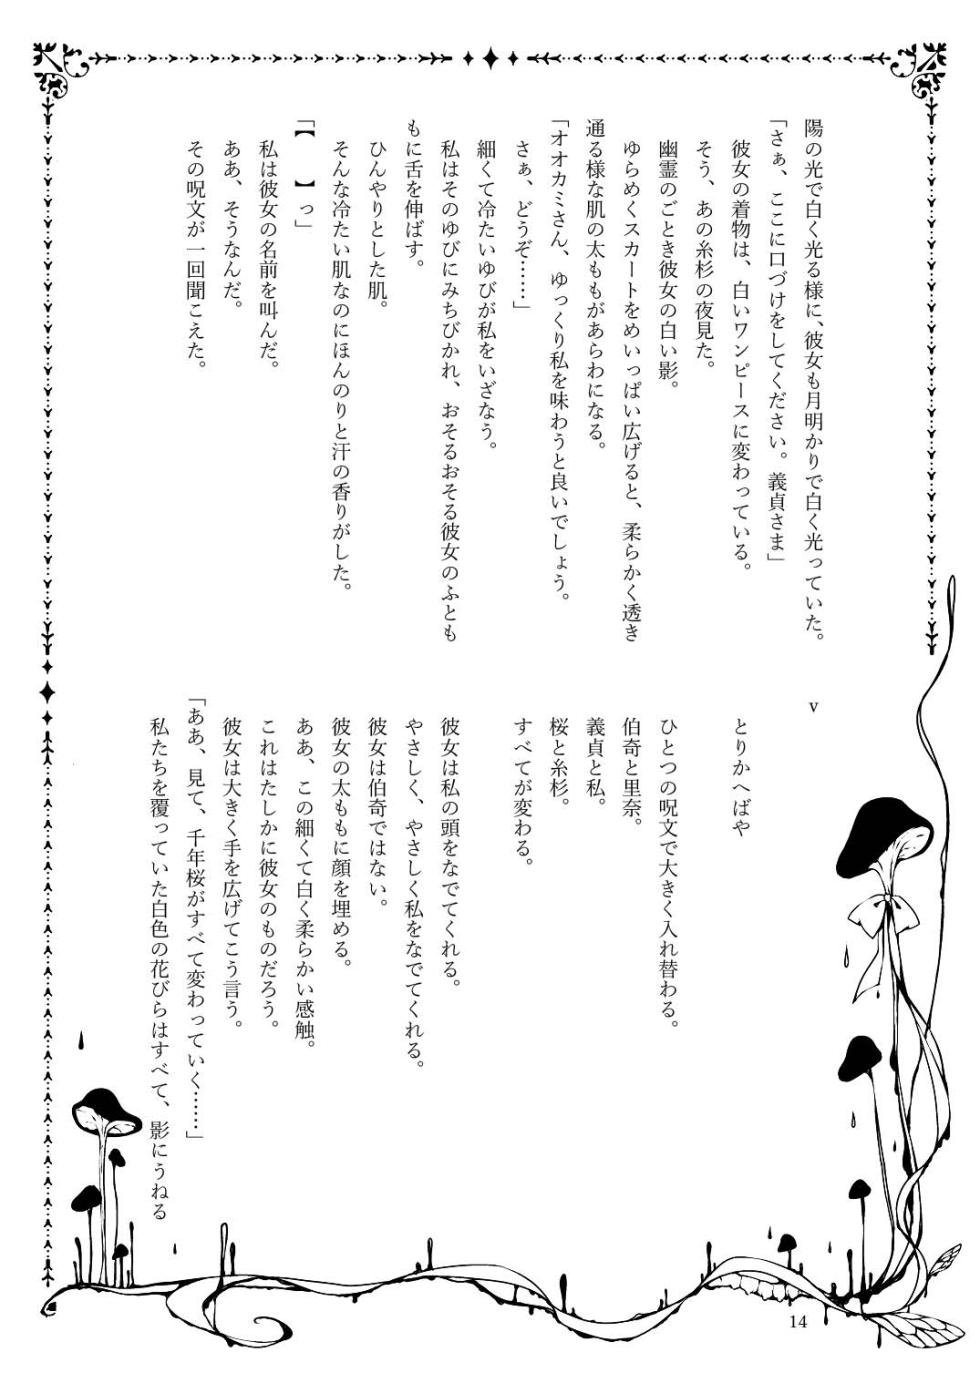 陽の光で白く光る様に、彼女も月明かりで白く光っていた。
「さぁ、ここに口づけをしてください。義貞さま」
彼女の着物は、白いワンピースに変わっている。
そう、あの糸杉の夜見た。
幽霊のごとき彼女の白い影。
ゆらめくスカートをめいっぱい広げると、柔らかく透き
通る様な肌の太ももがあらわになる。
「オオカミさん、ゆっくり私を味わうと良いでしょう。
さぁ、どうぞ……」
細くて冷たいゆびが私をいざなう。
私はそのゆびにみちびかれ、おそるおそる彼女のふとも
もに舌を伸ばす。
ひんやりとした肌。
そんな冷たい肌なのにほんのりと汗の香りがした。
「【　】っ」
私は彼女の名前を叫んだ。
ああ、そうなんだ。
その呪文が一回聞こえた。
v
とりかへばや
ひとつの呪文で大きく入れ替わる。
伯奇と里奈。
義貞と私。
桜と糸杉。
すべてが変わる。
彼女は私の頭をなでてくれる。
やさしく、やさしく私をなでてくれる。
彼女は伯奇ではない。
彼女の太ももに顔を埋める。
ああ、この細くて白く柔らかい感触。
これはたしかに彼女のものだろう。
彼女は大きく手を広げてこう言う。
「ああ、見て、千年桜がすべて変わっていく……」
私たちを覆っていた白色の花びらはすべて、影にうねる
14